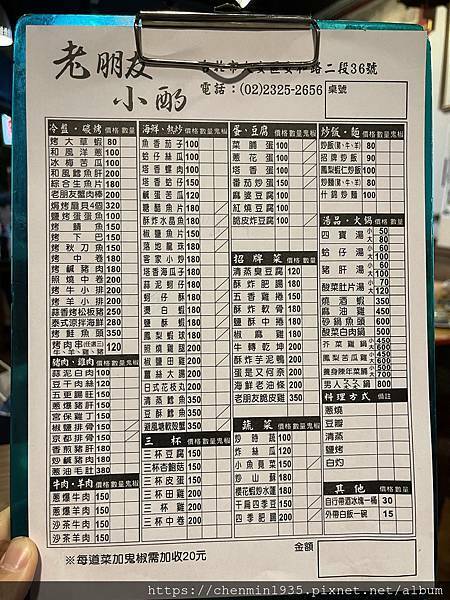 老朋友
小酌
台北市大安區安和路二段36號
電話：(02)2325-2656
桌號
冷盤・碳烤 價格 數量
烤大草蝦 80
和風洋蔥 100
冰梅苦瓜 100
和風鱈魚肝 200
綜合生魚片 200
老朋友蟹肉棒 200
焗烤扇貝4個 320
鹽烤蛋蛋魚 100
烤鯖巴 150
烤下巴 150
烤秋刀魚 150
烤中卷 180
烤鹹豬肉 180
照燒中卷 200
烤牛小排 200
烤羊小排 200
蒜香烤松板豬 250
泰式涼拌海鮮 280
烤鮭魚頭 350
烤肉串(任選三) 120
豬肉、雞肉 價格 數量 鬼椒
蒜泥白肉 100
豆干肉絲 120
五更腸旺 150
蔥爆豬肝 150
宮保雞丁 150
椒鹽排骨 150
京都排骨 150
香煎豬肝 180
炒鹹豬肉 200
蔥油毛肚 380
牛肉・羊肉 價格 數量 鬼椒
蔥爆牛肉 150
蔥爆羊肉 150
沙茶牛肉 150
沙茶羊肉 150
海鮮、熱炒 價格 數量 鬼椒
魚香茄子 100
蛤仔絲瓜 100
塔香螺肉 100
塔香蛤仔 150
鹹蛋苦瓜 150
糖醋魚片 180
酥炸水晶魚 150
椒鹽魚片 150
落地龍珠 150
客家小炒 150
塔香海瓜子 180
蒜泥蚵仔 180
蚵仔酥 180
燙白蝦 180
鹽酥蝦 180
鳳梨蝦球 180
照燒雞腿 200
椒鹽田雞 200
薑絲大腸 200
日式花枝丸 200
清蒸鱈魚 350
豆酥鱈魚 350
避風塘軟殼蟹 350
三杯 價格 數量 鬼椒
三杯豆腐 150
三杯杏鮑菇 150
三杯皮蛋 150
三杯田雞 200
三杯雞 200
三杯中卷 200
蛋、豆腐 價格 數量 鬼椒
菜脯蛋 100
蔥花蛋 100
塔香蛋 100
番茄炒蛋 150
麻婆豆腐 100
紅燒豆腐 100
脆皮炸豆腐 100
招牌菜 價格 數量
清蒸臭豆腐 120
酥炸肥腸 180
五香雞捲 150
酥炸軟骨 180
鹽酥中捲 180
椒麻雞 180
牛轉乾坤 200
酥炸芋泥鴨 200
蛋是又何奈 200
海鮮老油條 200
老朋友脆皮雞 350
蔬菜 價格 數量 鬼椒
炒時蔬 100
炸絲瓜 100
小魚莧菜 150
炒山蘇 180
櫻花蝦炒水蓮 180
干扁四季豆 150
四季肥腸 200
炒飯・麵 價格 數量 鬼椒
炒飯(豬、牛、羊) 80
招牌炒飯 90
鳳梨蝦仁炒飯 100
炒麵(豬、牛、羊) 80
什錦炒麵 100
湯品・火鍋 價格 數量
四寶湯 小50 大80
蛤仔湯 小60 大80
豬肝湯 小60 大80
酸菜肚片湯 小70 大120
燒酒蝦 350
麻油雞 450
砂鍋魚頭 600
酸菜白肉鍋 500
芥菜雞鍋 小450 大600
鳳梨苦瓜雞 小450 大600
養身陳年菜鍋 小500 大700
男人鍋 800
料理方式 備註
蔥燒
豆瓣
清蒸
鹽烤
白灼
其他 價格 數量
自行帶酒冰塊一桶 30
外帶白飯一碗 15
※每道菜加鬼椒需加收20元
金額
https://chenmin1935.pixnet.net/album